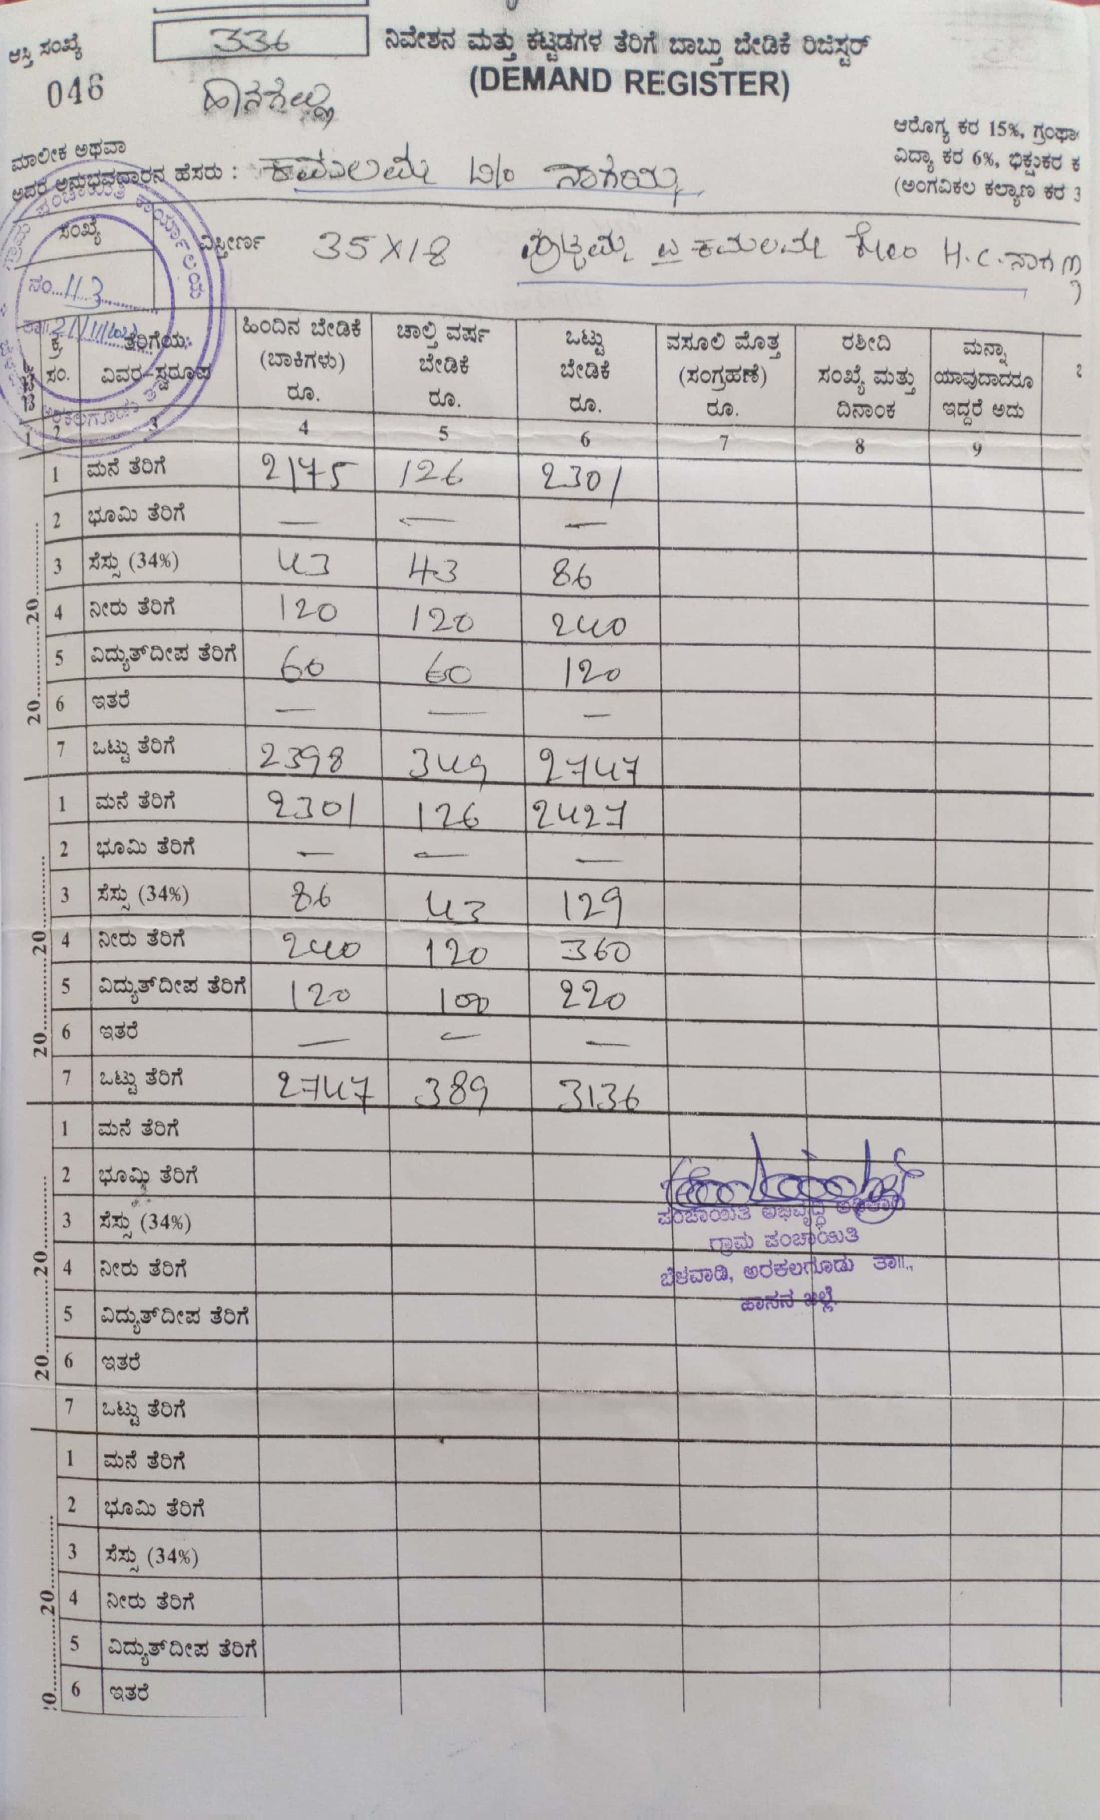 ಆಸ್ತಿ ಸಂಖ್ಯೆ 336 ನಿವೇಶನ ಮತ್ತು ಕಟ್ಟಡಗಳ ತೆರಿಗೆ ಬಾಬ್ತು ಬೇಡಿಕೆ ರಿಜಿಸ್ಟರ್
046 (DEMAND REGISTER)
ಹಾನಗೆಲ್ಲು
ಆರೋಗ್ಯ ಕರ 15%, ಗ್ರಂಥಾ
ಮಾಲೀಕ ಅಥವಾ ವಿದ್ಯಾ ಕರ 6%, ಭಿಕ್ಷುಕರ ಕ
ಅದರ ಅನುಭವದಾರನ ಹೆಸರು : ಕಮಲಮ್ಮ ನಾಗೆಯ್ಯ (ಅಂಗವಿಕಲ ಕಲ್ಯಾಣ ಕರ 3
ಸಂಖ್ಯೆ ವಿಸ್ತೀರ್ಣ 35X18 ಪುಟ್ಟಮ್ಮ ಕಮಲಮ್ಮ ಕೋಂ H.C.ನಾಗಣ್ಣ
ನಂ...113
ವರ್ಷ ಕ್ರ ಸಂ. ತೆರಿಗೆಯ ವಿವರ-ಸ್ವರೂಪ ಹಿಂದಿನ ಬೇಡಿಕೆ (ಬಾಕಿಗಳು) ರೂ. ಚಾಲ್ತಿ ವರ್ಷ ಬೇಡಿಕೆ ರೂ. ಒಟ್ಟು ಬೇಡಿಕೆ ರೂ. ವಸೂಲಿ ಮೊತ್ತ (ಸಂಗ್ರಹಣೆ) ರೂ. ರಶೀದಿ ಸಂಖ್ಯೆ ಮತ್ತು ದಿನಾಂಕ ಮನ್ನಾ ಯಾವುದಾದರೂ ಇದ್ದರೆ ಅದು
1 2 3 4 5 6 7 8 9
1 ಮನೆ ತೆರಿಗೆ 2175 126 2301
2 ಭೂಮಿ ತೆರಿಗೆ — — —
3 ಸೆಸ್ಸು (34%) 43 43 86
4 ನೀರು ತೆರಿಗೆ 120 120 240
5 ವಿದ್ಯುತ್‌ದೀಪ ತೆರಿಗೆ 60 60 120
6 ಇತರೆ — — —
7 ಒಟ್ಟು ತೆರಿಗೆ 2398 349 2747
20.........20.........
1 ಮನೆ ತೆರಿಗೆ 2301 126 2427
2 ಭೂಮಿ ತೆರಿಗೆ — — —
3 ಸೆಸ್ಸು (34%) 86 43 129
4 ನೀರು ತೆರಿಗೆ 240 120 360
5 ವಿದ್ಯುತ್‌ದೀಪ ತೆರಿಗೆ 120 100 220
6 ಇತರೆ — — —
7 ಒಟ್ಟು ತೆರಿಗೆ 2747 389 3136
20.........20.........
1 ಮನೆ ತೆರಿಗೆ
2 ಭೂಮಿ ತೆರಿಗೆ
3 ಸೆಸ್ಸು (34%)
4 ನೀರು ತೆರಿಗೆ
5 ವಿದ್ಯುತ್‌ದೀಪ ತೆರಿಗೆ
6 ಇತರೆ
7 ಒಟ್ಟು ತೆರಿಗೆ
20.........20.........
ಪಂಚಾಯಿತಿ ಅಭಿವೃದ್ಧಿ ಅಧಿಕಾರಿ
ಗ್ರಾಮ ಪಂಚಾಯಿತಿ
ಬೆಳವಾಡಿ, ಅರಕಲಗೂಡು ತಾ||.,
ಹಾಸನ ಜಿಲ್ಲೆ.
1 ಮನೆ ತೆರಿಗೆ
2 ಭೂಮಿ ತೆರಿಗೆ
3 ಸೆಸ್ಸು (34%)
4 ನೀರು ತೆರಿಗೆ
5 ವಿದ್ಯುತ್‌ದೀಪ ತೆರಿಗೆ
6 ಇತರೆ